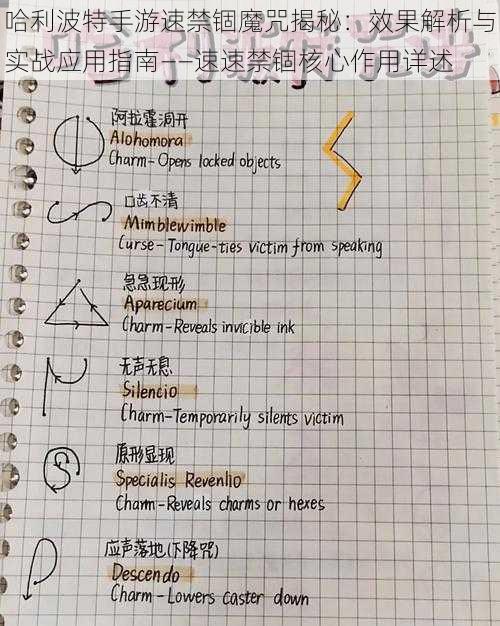 哈利波特手游速禁锢魔咒揭秘：效果解析与
实战应用指南——速速禁锢核心作用详述
阿拉霍洞开
Alohomora
Charm-Opens locked objects
口齿不清
Mimblewimble
Curse-Tongue-ties victim from speaking
急急现形
Aparecium
Charm-Reveals invicible ink
无声无息
Silencio
Charm-Temporarily silents victim
原形显现
Specialis Revenlio
Charm-Reveals charms or hexes
应声落地(下降咒)
Descendo
Charm-Lowers caster down